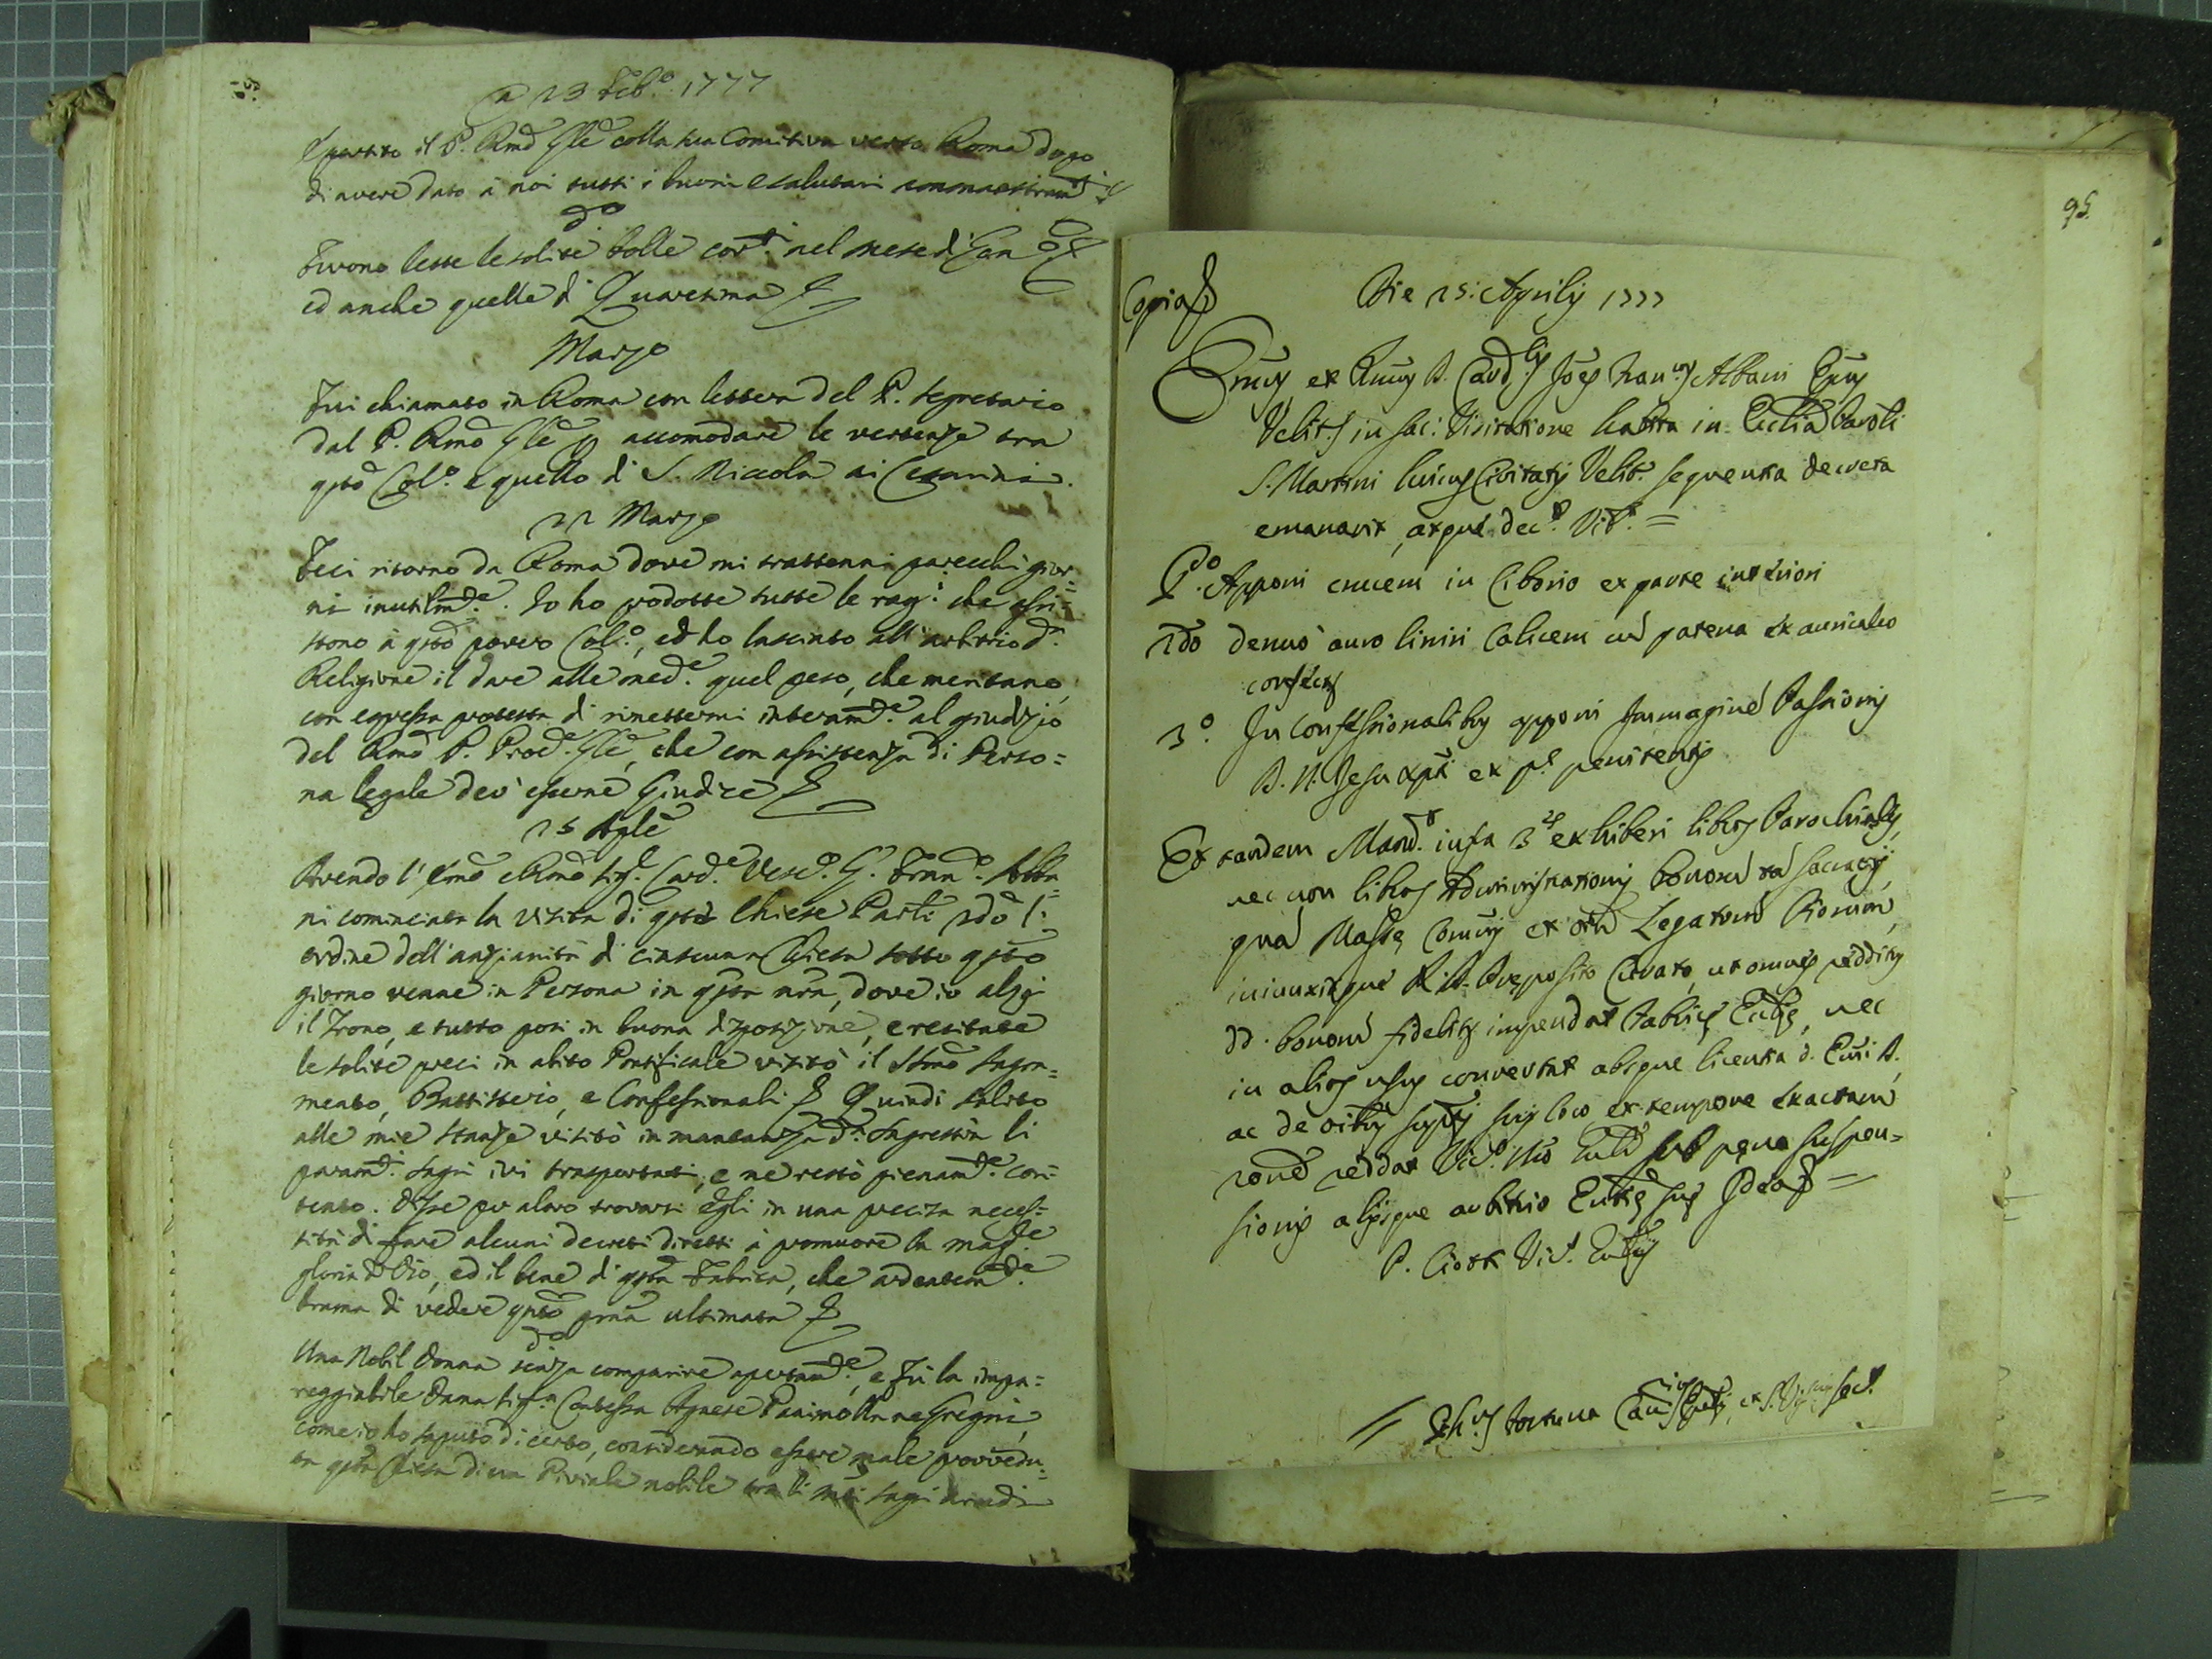 A 23 Feb.o 1777
È partito il P. Rmo Gle colla sua Comitiva verso Roma dopo
di avere dato à noi tutti i buoni e salutari
do
Furono lesse le solite bolle cor.ti nel mese di Gen.o
ed anche quelle di Quaresima
Marzo
Fui chiamato in Roma con lettera del P. Segretario
dal P. Rmo Gle p accomodare le vertenze tra
qsto Col.o e quello di S. Niccola ai Cesarini.
22 Marzo
Feci ritorno da Roma dove mi trattenni parecchi gior=
ni inutilmte. Io ho prodotte tutte le rag.i che assi=
stono à qsto povero Col.o, ed ho lasciato all'arbitrio d.
Religione il dare alle med.e quel peso, che meritano,
con espressa protesta di rimettermi interamte al giudizio
del Rmo P. Proc.e Gle, che con assistenza di Perso=
na legale dev'esserne Giudice
25 Aple
Avendo l'Emo e Rmo Sig.e Card.e Vesc.o G. Fran.o Alba=
ni cominciata la visita di qste Chiese Parli 2do l'
ordine dell'anzianità di ciascuna Chiesa sotto qsto
giorno venne in Persona in qsta nra, dove io alzai
il Trono, e tutto posi in buona disposizione, e recitate
le solite preci in abito Pontificale visitò il Smo Sagra=
mento, Battisterio, e Confessionali Quindi salito
alle mie stanze visitò in mancanza d.a Sagrestia li
paramti sagri ivi trasportati, e ne restò pienamte con=
tento. Disse per altro trovarsi Egli in una precisa neces=
sità di fare alcuni decreti diretti à promuovere la mag.e
gloria d Dio, ed il bene di qsta Fabrica, che ardentemte
brama di vedere qsto prima ultimata
do
Una Nobil Donna senza comparire apertamte, e fù la impa=
reggiabile Dama Sig.a Contessa Agnese ne Gregni,
come io ho saputo di certo, considerando essere male provvedu=
ta qsta Chiesa di un Piviale nobile tra li sagri arredi
95
Copia
Die 25: Aprilis 1777
Emus et Rmus D. Card.lis Joes Fran.cus Albani Epus
Velit.s in sac: Visitatione habita in Ecclia Paroli
S. Martini huius Civitatis Velit. sequentia decreta
emanavit, atque dec.t Vid.t =
P.o Apponi crucem in Ciborio ex parte interiori
2do denuo auro liniri Calicem cum patena ex auricalco
confectis
3.o In confessionalibus apponi Immaginem Passionis
D. N. Jesu Xpti ex p.e penitentis
Et tandem Mand.t infra 3 exhiberi libros Parochiales,
nec non libros Administrationis bonorum tam Sacristiæ,
quam Massæ Comunis et Legatorum Piorum,
iniunxitque R. D. Præposito Curato, ut omnes redditus
dd. bonorum fideliter impendat Fabricæ Eccliæ, nec
in alios usus convertat absque licentia d. Emi D.
ac de oibus suptis suis loco et tempore exactam
ronem reddat sub pena suspen=
sionis aliisque arbitrio Em̃tiæ suæ
P. Ciotti Vic. Gnlis
= Fortuna et S. Vis.nis Sec.s